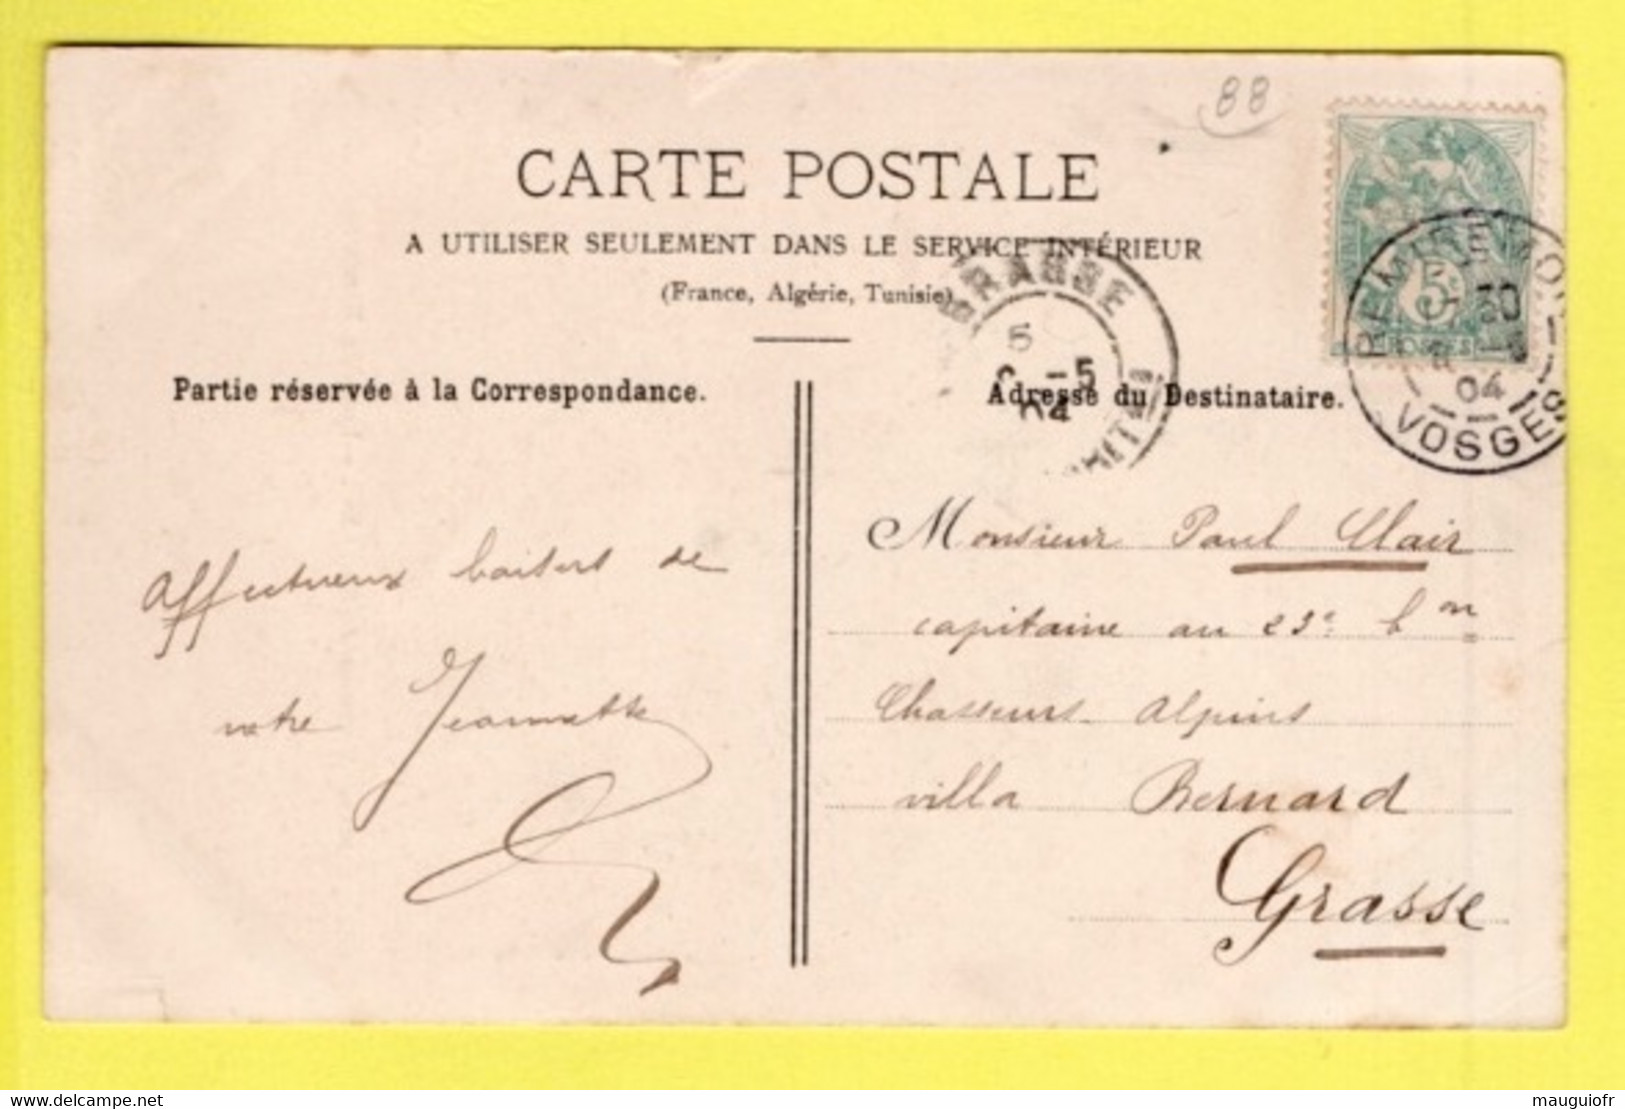 88
CARTE POSTALE
A UTILISER SEULEMENT DANS LE SERVICE INTÉRIEUR
(France, Algérie, Tunisie)
GRASSE
5
-5
04
5c
POSTES
REMIREMONT
30
04
VOSGES
Partie réservée à la Correspondance.
Adresse du Destinataire.
Affectueux baisers de
votre Jeannette
Monsieur Paul Clair
capitaine au 23e bon
Chasseurs Alpins
villa Bernard
Grasse
delcampe.net
mauguiofr